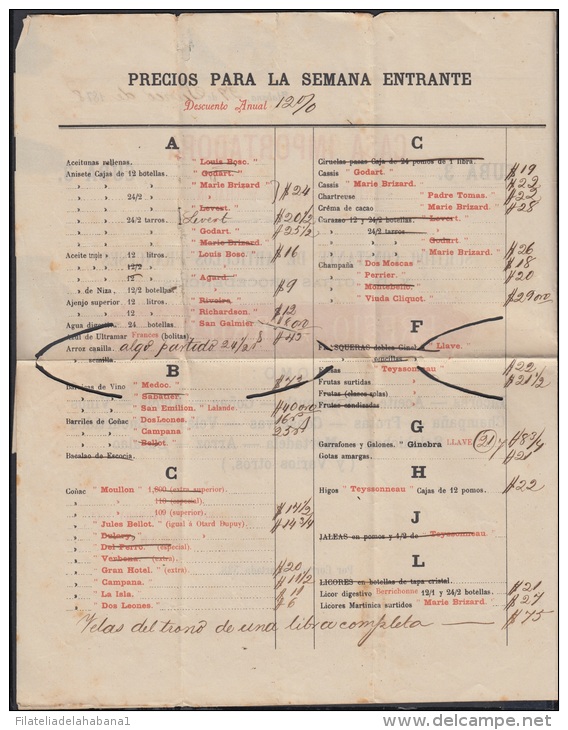 PRECIOS PARA LA SEMANA ENTRANTE
Descuento Anual 12%
A
Aceitunas rellenas. "Louis Bosc. "
Anisete Cajas de 12 botellas. "Godart. "
" Marie Brizard " $24
24/2 "Levert. "
24/2 tarros. Levert $20/2
Godart. " $25/2
" Marie Brizard
Aceite 12 litros. Louis Bosc. " $16
12/2
12/2 "Agard. "
de Niza. 12/2 botellas. $9
Ajenjo superior 12 litros. Rivoira "
12/2 Richardson. " $12
Agua digestiva 24 botellas. San Galmier
Azul de Ultramar Frances (bolitas) $45
Arroz canilla. algo partido 24/28
" semilla.
B
Barricas de Vino "Medoc. " $73
Sabatier.
San Emilion. "Lalande. $40 oro
Barriles de Coñac "Dos Leones.
Campana
"Bellot.
Bacalao de Escocia.
C
Coñac "Moullon " 1,800 (extra superior).
" 110 (especial).
" 109 (superior). $14 1/2
" Jules Bellot. " (igual á Otard Dupuy) $14 3/4
" Dulary. "
" Del Ferro. (especial).
" Verbena. (extra).
" Gran Hotel. " (extra). $20
" Campana. "
" La isla. $11
" Dos Leones. " $6
C
Ciruelas pasas Caja de 24 pomos de 1 libra.
Cassis "Godart. " $19
Cassis "Marie Brizard. $22
Chartreuse " "Padre Tomas. " $22
Créma de cacao " Marie Brizard. " $28
Curasao 12 y 24/2 botellas. Levert. "
24/2 tarros "
" Godart. "
" Marie Brizard. $26
Champaña "Dos Moscas " $18
" Perrier. " $20
" Montebello. "
" Viuda Cliquot. " $29 oro
F
FRASQUERAS dobles Ginebra " Llave.
" sencillas "
Fresas "Teyssonneau " $22
Frutas surtidas " $21 1/2
Frutas (clases solas)
Frutas candizadas
G
Garrafones y Galones. " Ginebra LLAVE (21) y $8 3/4
Gotas amargas. $21
H
Higos "Teyssonneau " Cajas de 12 pomos. $22
J
JALEAS en pomos y 4/2 de Teyssonneau
L
LICORES en botellas de tapa cristal.
Licor digestivo Berrichonne 12/1 y 24/2 botellas. $21
Licores Martinica surtidos " Marie Brizard. " $27
Velas del trono de una libra completa — $75
Filateliadelahabana1
delcampe.net